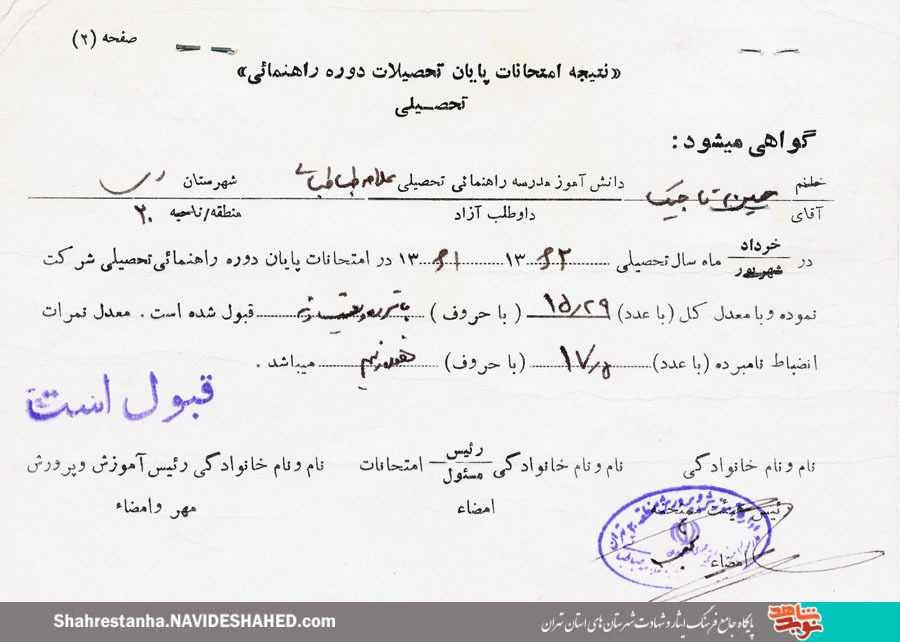 صفحه (۲)
«نتیجه امتحانات پایان تحصیلات دوره راهنمائی»
تحصیلی
گواهی میشود:
خانم
آقای
حسین تاجیک دانش آموز مدرسه راهنمائی تحصیلی علامه طباطبایی شهرستان ری
داوطلب آزاد منطقه/ناحیه ۲۰
در خرداد
شهریور
ماه سال تحصیلی ۱۳۶۲ ۱۳۶۱ در امتحانات پایان دوره راهنمائی تحصیلی شرکت
نموده و با معدل کل (با عدد) ۱۵/۲۹ (با حروف) قبول شده است . معدل نمرات
انضباط نامبرده (با عدد) ۱۷/۵ (با حروف) میباشد .
قبول است
نام و نام خانوادگی نام و نام خانوادگی رئیس
مسئول
امتحانات نام و نام خانوادگی رئیس آموزش و پرورش
رئیس هیئت ممتحنه امضاء مهر و امضاء
امضاء
Shahrestanha.NAVIDESHAHED.com
پایگاه جامع فرهنگ ایثار و شهادت شهرستان های استان تهران
نوید شاهد